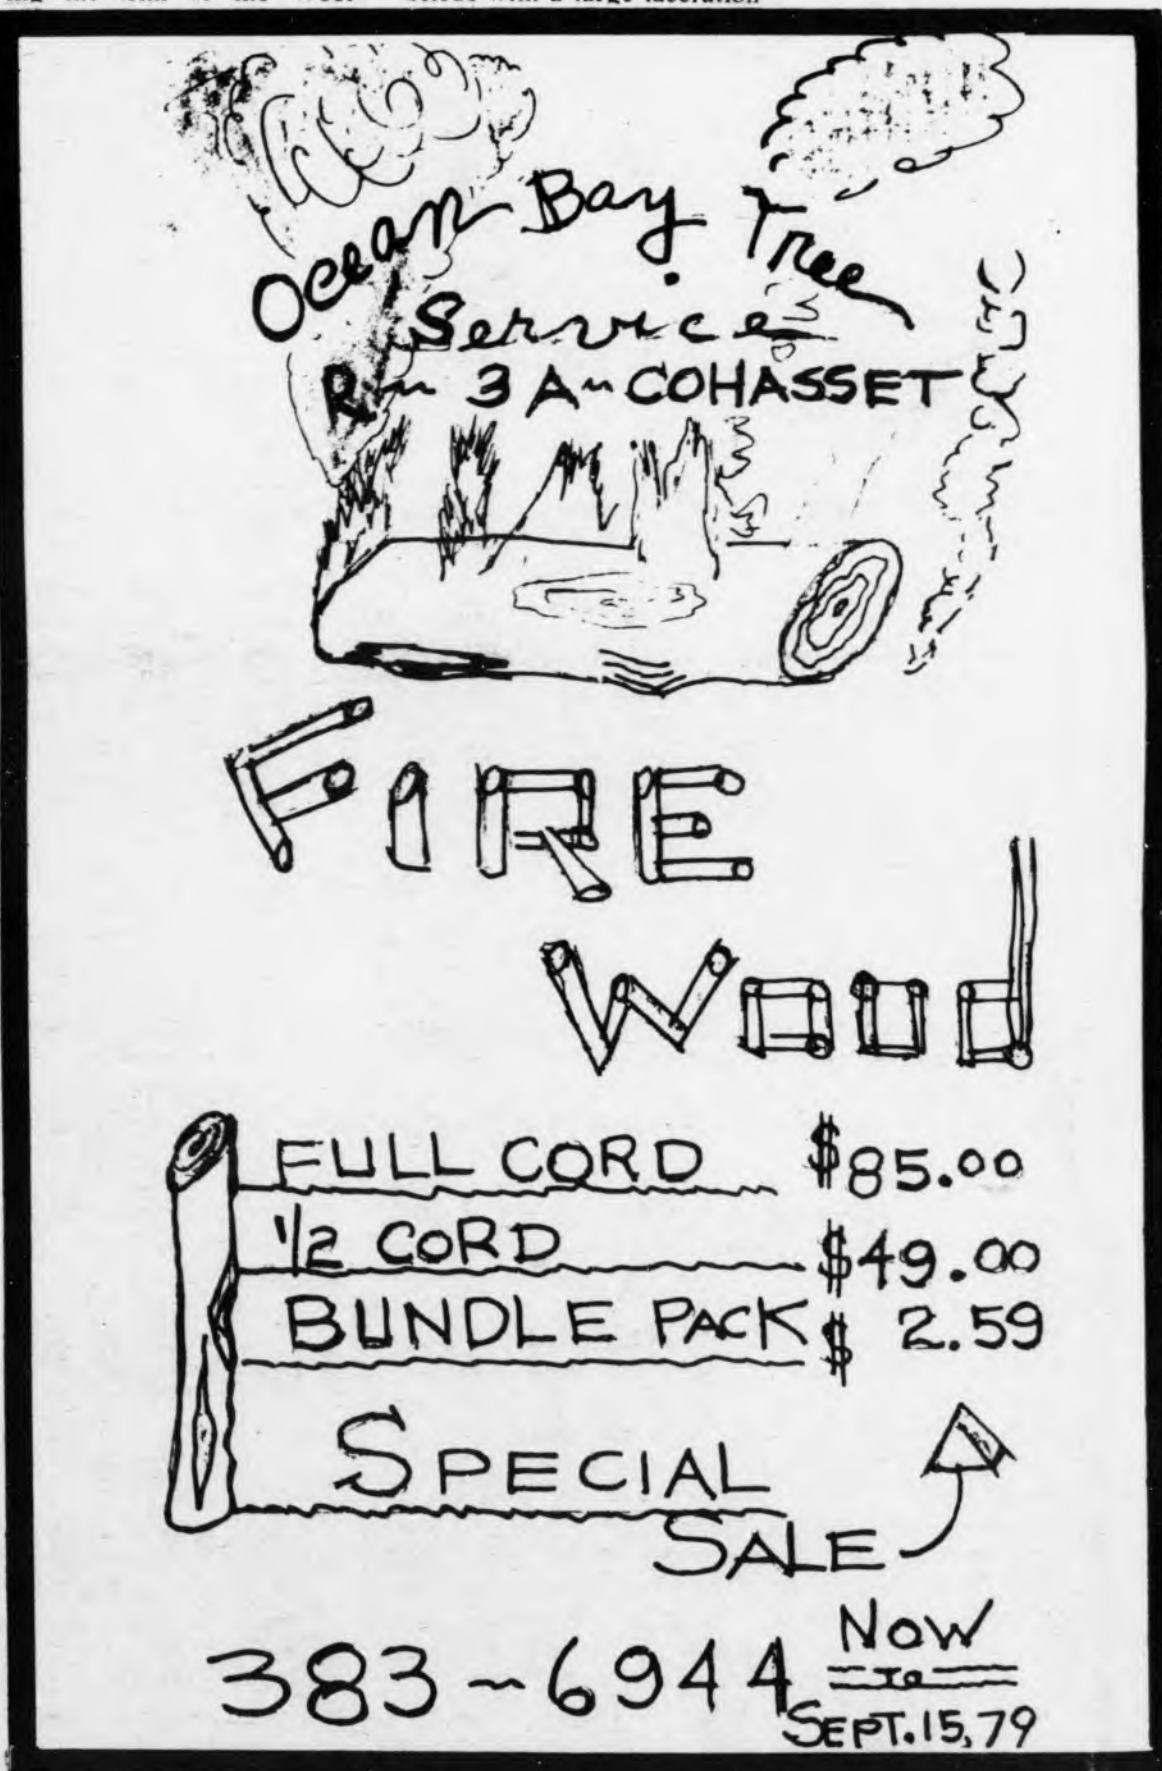 Ocean Bay Tree
Service
R~ 3A~COHASSET
FIRE
Wood
FULL CORD $85.00
1/2 CORD $49.00
BUNDLE PACK $ 2.59
SPECIAL
SALE
383-6944
NOW
TO
SEPT.15,79